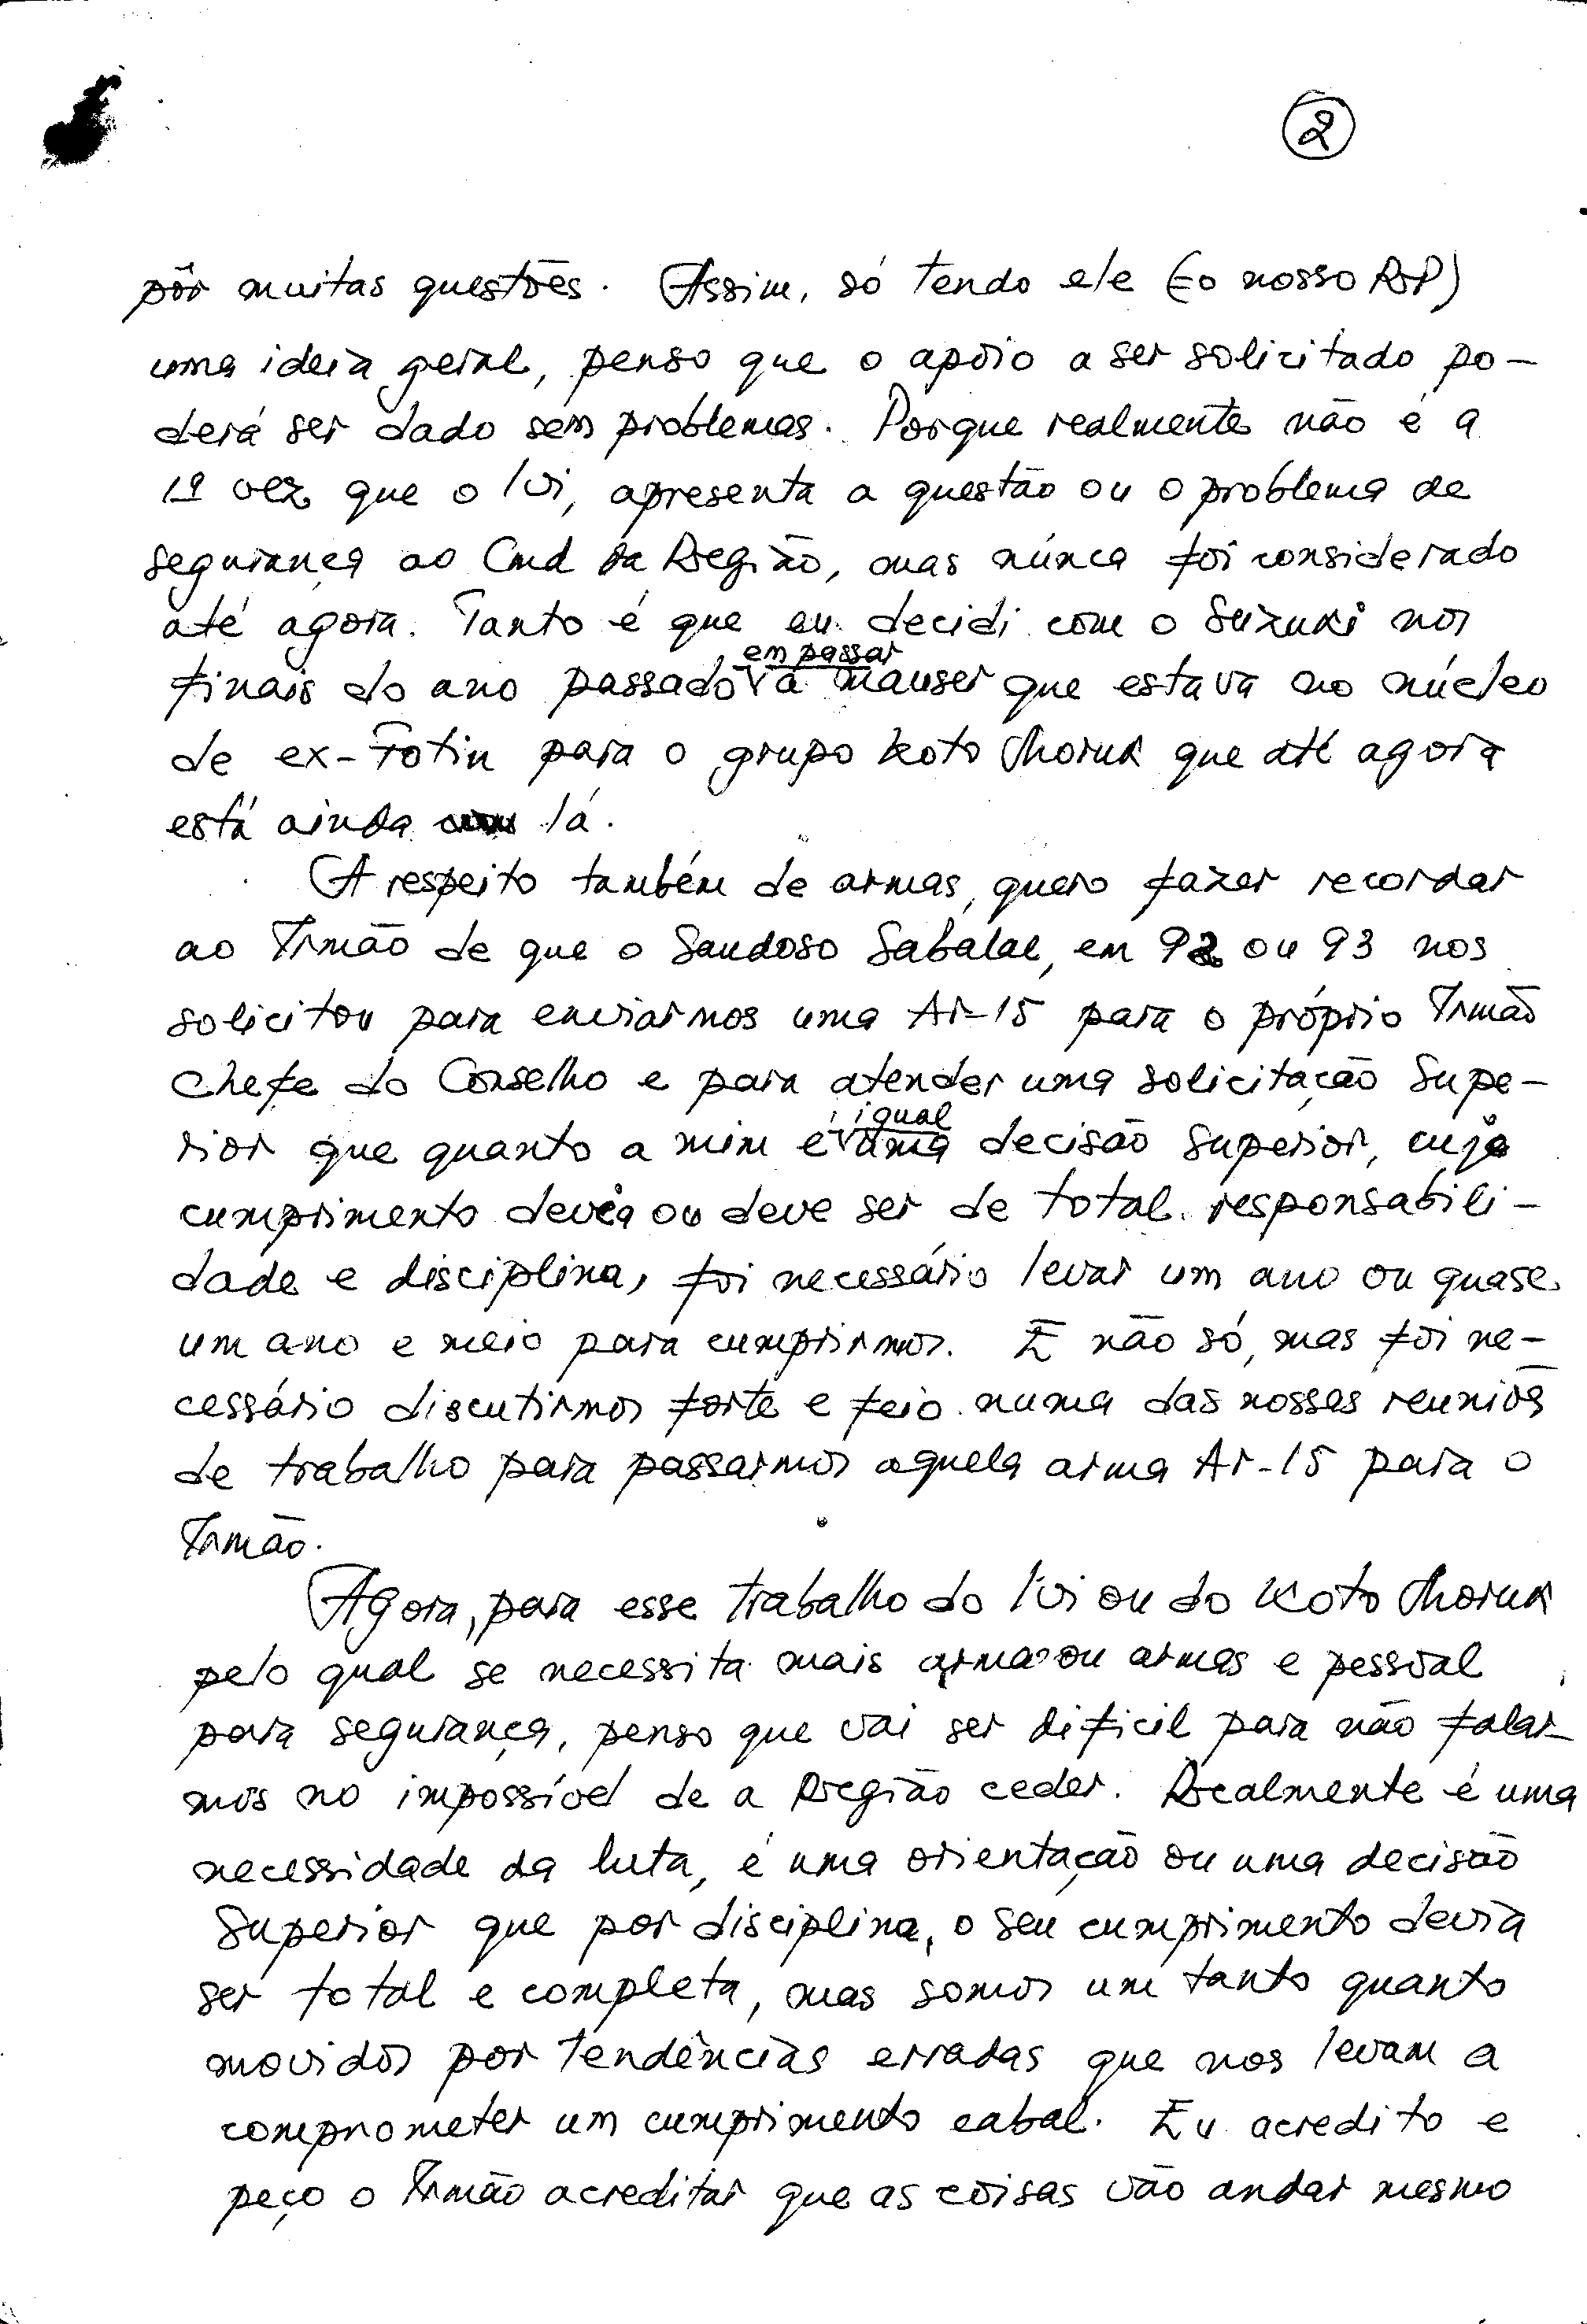 2
pôr muitas questões. Assim, só tendo ele (o nosso RP)
uma ideia geral, penso que o apoio a ser solicitado po-
derá ser dado sem problemas. Porque realmente não é a
1ª vez que o lvi, apresenta a questão ou o problema de
segurança ao Cmd da Região, mas núnca foi considerado
até agora. Tanto é que eu decidi com o Suzuki nos
em passar
finais do ano passado a mauser que estava no núcleo
de ex-Fotin para o grupo Koto Moruk que até agora
está ainda lá.
A respeito também de armas, quero fazer recordar
ao Irmão de que o Saudoso Sabalae, em 92 ou 93 nos
solicitou para enviarmos uma Ar-15 para o próprio Irmão
Chefe do Conselho e para atender uma solicitação Supe-
igual
rior que quanto a mim é uma decisão Superior, cujo
cumprimento devia ou deve ser de total responsabili-
dade e disciplina, foi necessário levar um ano ou quase
um ano e meio para cumprirmos. E não só, mas foi ne-
cessário discutirmos forte e feio numa das nossas reuniões
de trabalho para passarmos aquela arma Ar-15 para o
Irmão.
Agora, para esse trabalho do lvi ou do Koto Moruk
pelo qual se necessita mais arma ou armas e pessoal
para segurança, penso que vai ser dificil para não falar-
mos no impossível de a Região ceder. Realmente é uma
necessidade da luta, é uma orientação ou uma decisão
Superior que por disciplina, o seu cumprimento devia
ser total e completa, mas somos um tanto quanto
movidos por tendências erradas que nos levam a
comprometer um cumprimento cabal. Eu acredito e
peço o Irmão acreditar que as coisas vão andar mesmo